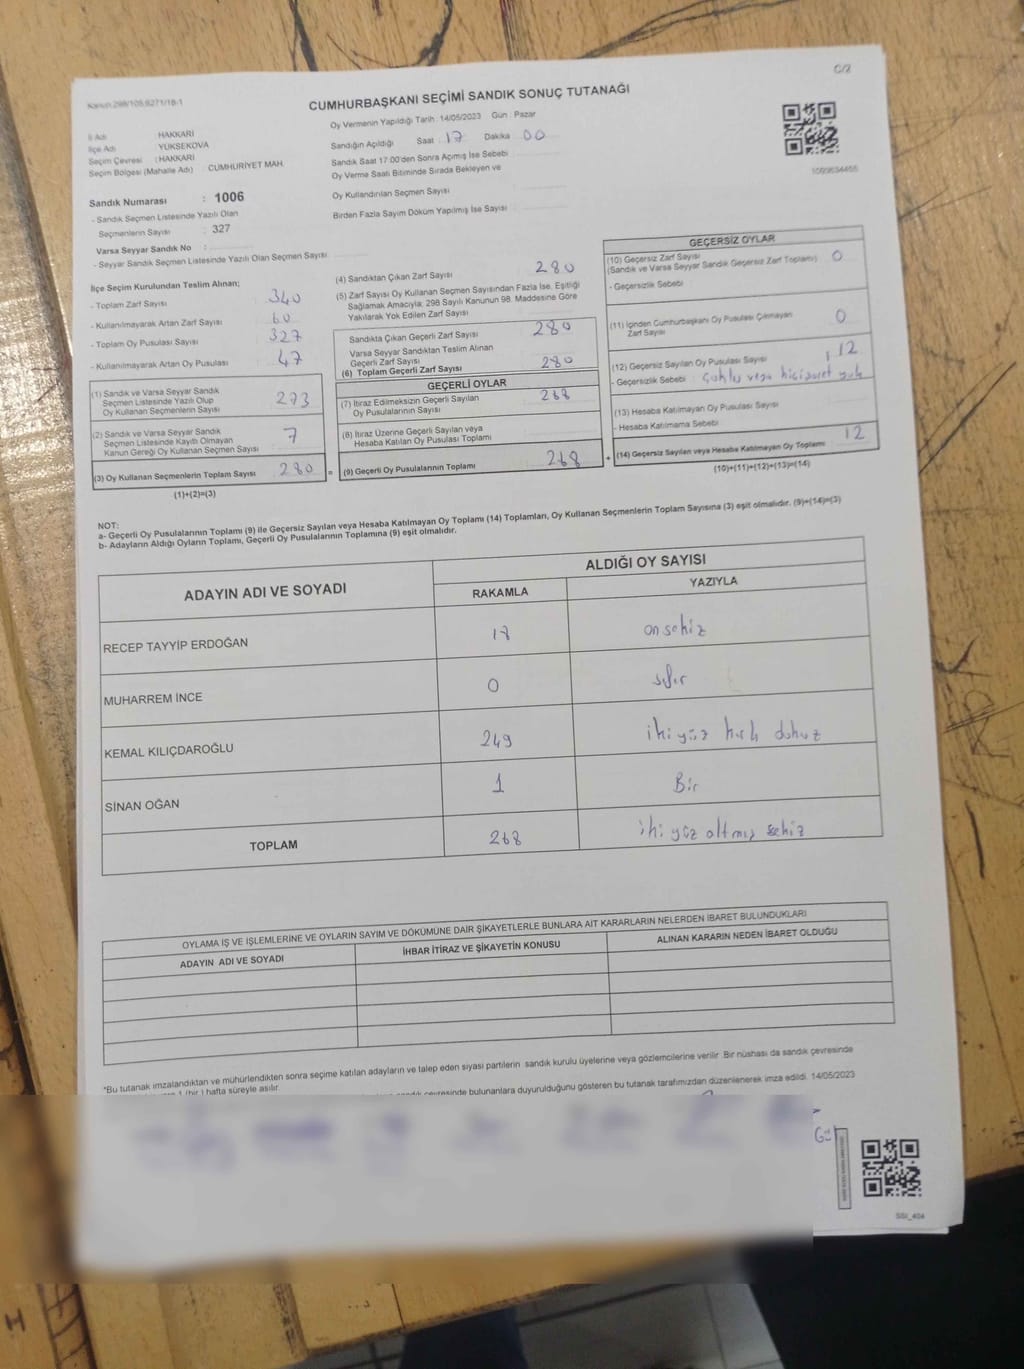 C/2
Kanun 298/105,6271/18-1
CUMHURBAŞKANI SEÇİMİ SANDIK SONUÇ TUTANAĞI
İl Adı HAKKARİ
İlçe Adı YÜKSEKOVA
Seçim Çevresi : HAKKARİ
Seçim Bölgesi (Mahalle Adı) CUMHURİYET MAH.
Sandık Numarası : 1006
- Sandık Seçmen Listesinde Yazılı Olan
Seçmenlerin Sayısı : 327
Varsa Seyyar Sandık No :
- Seyyar Sandık Seçmen Listesinde Yazılı Olan Seçmen Sayısı
Oy Vermenin Yapıldığı Tarih : 14/05/2023 Gün : Pazar
Sandığın Açıldığı Saat : 17 Dakika 00
Sandık Saat 17:00'den Sonra Açımış İse Sebebi
Oy Verme Saati Bitiminde Sırada Bekleyen ve
Oy Kullandırılan Seçmen Sayısı
Birden Fazla Sayım Döküm Yapılmış İse Sayısı
İlçe Seçim Kurulundan Teslim Alınan;
- Toplam Zarf Sayısı 340
- Kullanılmayarak Artan Zarf Sayısı 60
- Toplam Oy Pusulası Sayısı 327
- Kullanılmayarak Artan Oy Pusulası 47
(1) Sandık ve Varsa Seyyar Sandık
Seçmen Listesinde Yazılı Olup
Oy Kullanan Seçmenlerin Sayısı 273
(2) Sandık ve Varsa Seyyar Sandık
Seçmen Listesinde Kayıtlı Olmayan
Kanun Gereği Oy Kullanan Seçmen Sayısı 7
(3) Oy Kullanan Seçmenlerin Toplam Sayısı 280 =
(1)+(2)=(3)
(4) Sandıktan Çıkan Zarf Sayısı 280
(5) Zarf Sayısı Oy Kullanan Seçmen Sayısından Fazla İse, Eşitliği
Sağlamak Amacıyla; 298 Sayılı Kanunun 98. Maddesine Göre
Yakılarak Yok Edilen Zarf Sayısı
Sandıkta Çıkan Geçerli Zarf Sayısı 280
Varsa Seyyar Sandıktan Teslim Alınan
Geçerli Zarf Sayısı
(6) Toplam Geçerli Zarf Sayısı 280
GEÇERLİ OYLAR
(7) İtiraz Edilmeksizin Geçerli Sayılan
Oy Pusulalarının Sayısı 268
(8) İtiraz Üzerine Geçerli Sayılan veya
Hesaba Katılan Oy Pusulası Toplamı
(9) Geçerli Oy Pusulalarının Toplamı 268 +
GEÇERSİZ OYLAR
(10) Geçersiz Zarf Sayısı
(Sandık ve Varsa Seyyar Sandık Geçersiz Zarf Toplamı) 0
- Geçersizlik Sebebi :
(11) İçinden Cumhurbaşkanı Oy Pusulası Çıkmayan
Zarf Sayısı 0
(12) Geçersiz Sayılan Oy Pusulası Sayısı 12
- Geçersizlik Sebebi :
(13) Hesaba Katılmayan Oy Pusulası Sayısı
- Hesaba Katılmama Sebebi
(14) Geçersiz Sayılan veya Hesaba Katılmayan Oy Toplamı 12
(10)+(11)+(12)+(13)=(14)
NOT:
a- Geçerli Oy Pusulalarının Toplamı (9) ile Geçersiz Sayılan veya Hesaba Katılmayan Oy Toplamı (14) Toplamları, Oy Kullanan Seçmenlerin Toplam Sayısına (3) eşit olmalıdır. (9)+(14)=(3)
b- Adayların Aldığı Oyların Toplamı, Geçerli Oy Pusulalarının Toplamına (9) eşit olmalıdır.
ADAYIN ADI VE SOYADI
ALDIĞI OY SAYISI
RAKAMLA YAZIYLA
RECEP TAYYİP ERDOĞAN 18 on sekiz
MUHARREM İNCE 0 sıfır
KEMAL KILIÇDAROĞLU 249 iki yüz kırk dokuz
SİNAN OĞAN 1 Bir
TOPLAM 268 iki yüz altmış sekiz
OYLAMA İŞ VE İŞLEMLERİNE VE OYLARIN SAYIM VE DÖKÜMÜNE DAİR ŞİKAYETLERLE BUNLARA AİT KARARLARIN NELERDEN İBARET BULUNDUKLARI
ADAYIN ADI VE SOYADI İHBAR İTİRAZ VE ŞİKAYETİN KONUSU ALINAN KARARIN NEDEN İBARET OLDUĞU
*Bu tutanak imzalandıktan ve mühürlendikten sonra seçime katılan adayların ve talep eden siyasi partilerin sandık kurulu üyelerine veya gözlemcilerine verilir. Bir nüshası da sandık çevresinde
1 (bir ) hafta süreyle asılır.
çevresinde bulunanlara duyurulduğunu gösteren bu tutanak tarafımızdan düzenlenerek imza edildi. 14/05/2023
SSI_404